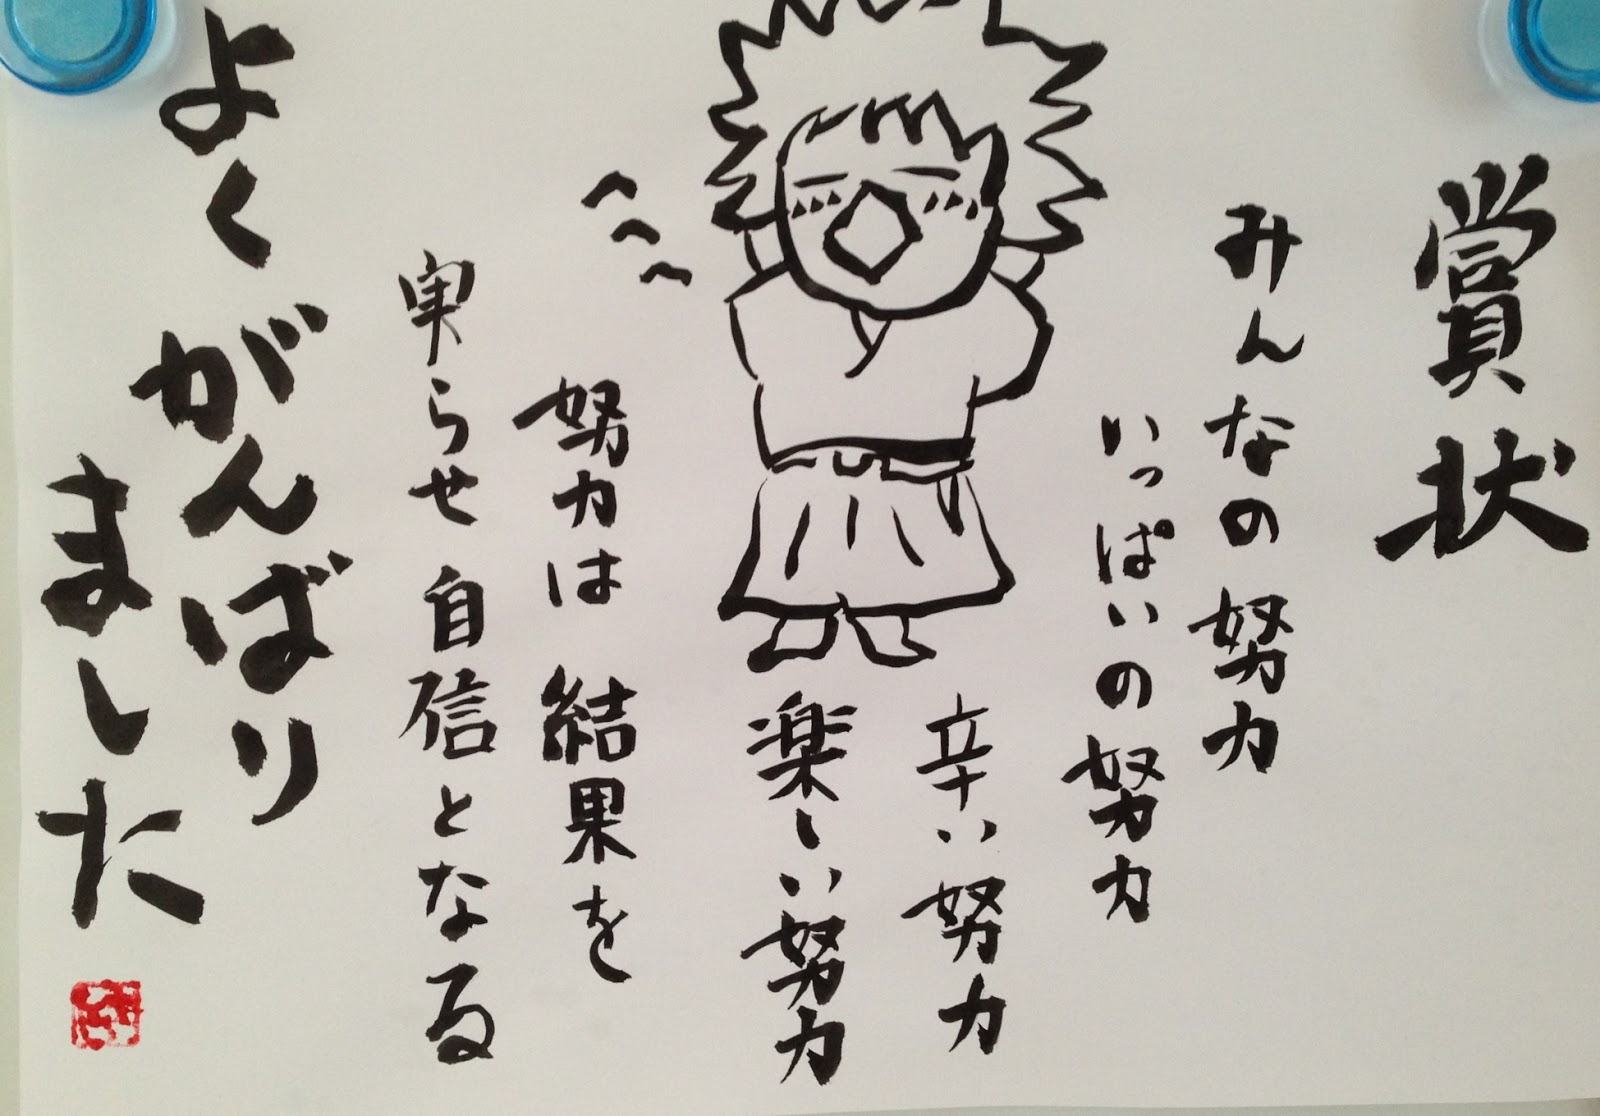 賞状
みんなの努力
いっぱいの努力
辛い努力
楽しい努力
努力は結果を
実らせ自信となる
よく
がんばり
ました